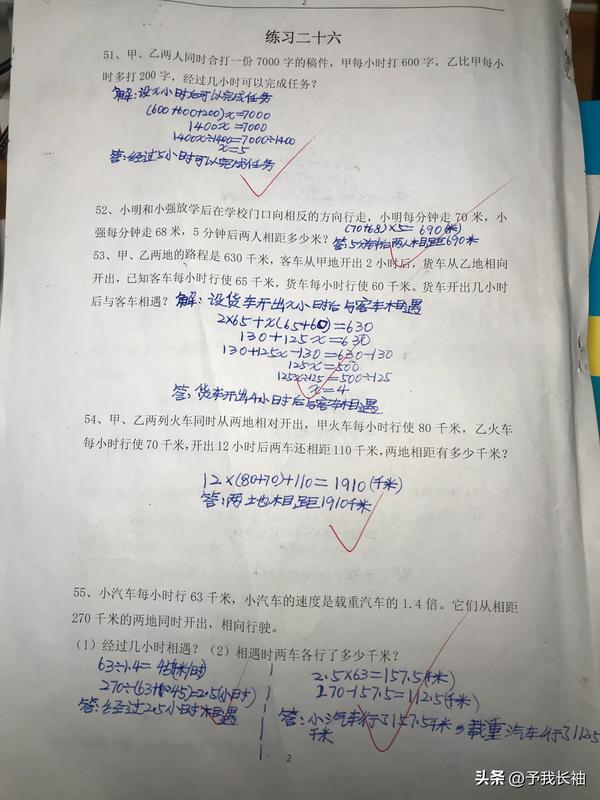 2
练习二十六
51、甲、乙两人同时合打一份 7000 字的稿件，甲每小时打 600 字，乙比甲每小
时多打 200 字，经过几小时可以完成任务？
解：设x小时后可以完成任务
(600+600+200)x=7000
1400x=7000
1400x÷1400=7000÷1400
x=5
答：经过5小时可以完成任务
52、小明和小强放学后在学校门口向相反的方向行走，小明每分钟走 70 米，小
强每分钟走 68 米，5 分钟后两人相距多少米？
(70+68)×5=690(米)
答：5分钟后两人相距690米
53、甲、乙两地的路程是 630 千米，客车从甲地开出 2 小时后，货车从乙地相向
开出，已知客车每小时行使 65 千米，货车每小时行使 60 千米。货车开出几小时
后与客车相遇？
解：设货车开出x小时后与客车相遇
2×65+x(65+60)=630
130+125x=630
130+125x-130=630-130
125x=500
125x÷125=500÷125
x=4
答：货车开出4小时后与客车相遇
54、甲、乙两列火车同时从两地相对开出，甲火车每小时行使 80 千米，乙火车
每小时行使 70 千米，开出 12 小时后两车还相距 110 千米，两地相距有多少千米？
12×(80+70)+110=1910(千米)
答：两地相距1910千米
55、小汽车每小时行 63 千米，小汽车的速度是载重汽车的 1.4 倍。它们从相距
270 千米的两地同时开出，相向行驶。
（1）经过几小时相遇？（2）相遇时两车各行了多少千米？
63÷1.4=45(千米/时)
270÷(63+45)=2.5(小时)
答：经过2.5小时相遇
2.5×63=157.5(千米)
270-157.5=112.5(千米)
答：小汽车行了157.5千米，载重汽车行了112.5
千米
2
头条 @予我长袖